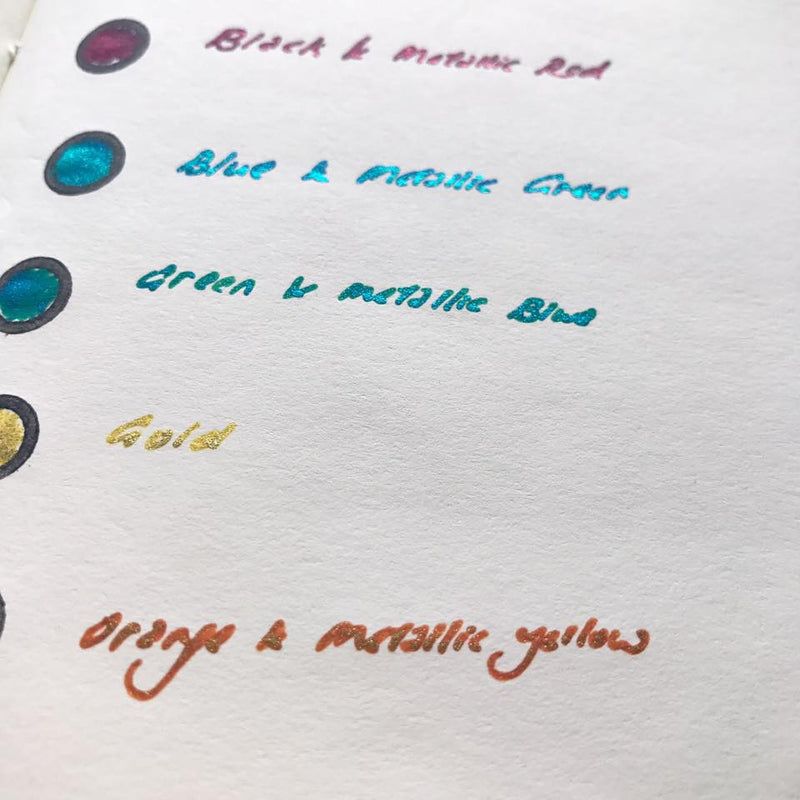 Black & Metallic Red
Blue & Metallic Green
Green & metallic Blue
Gold
Orange & metallic yellow